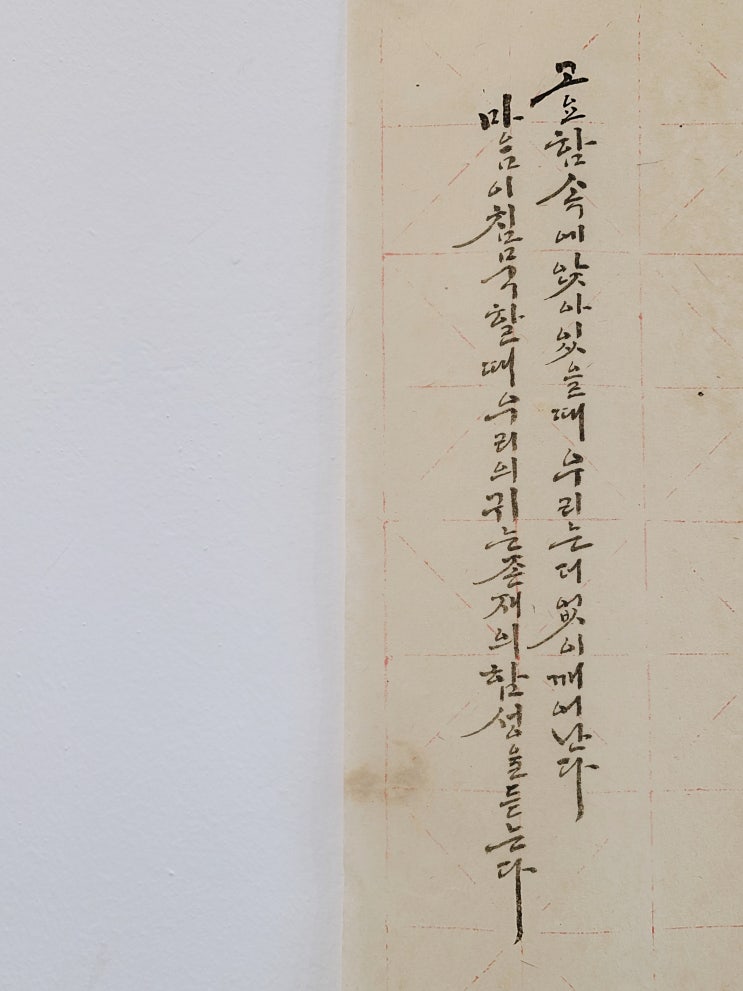 고요함 속에 앉아 있을 때 우리는 더 없이 깨어난다
마음이 침묵할 때 우리의 귀는 존재의 함성을 듣는다